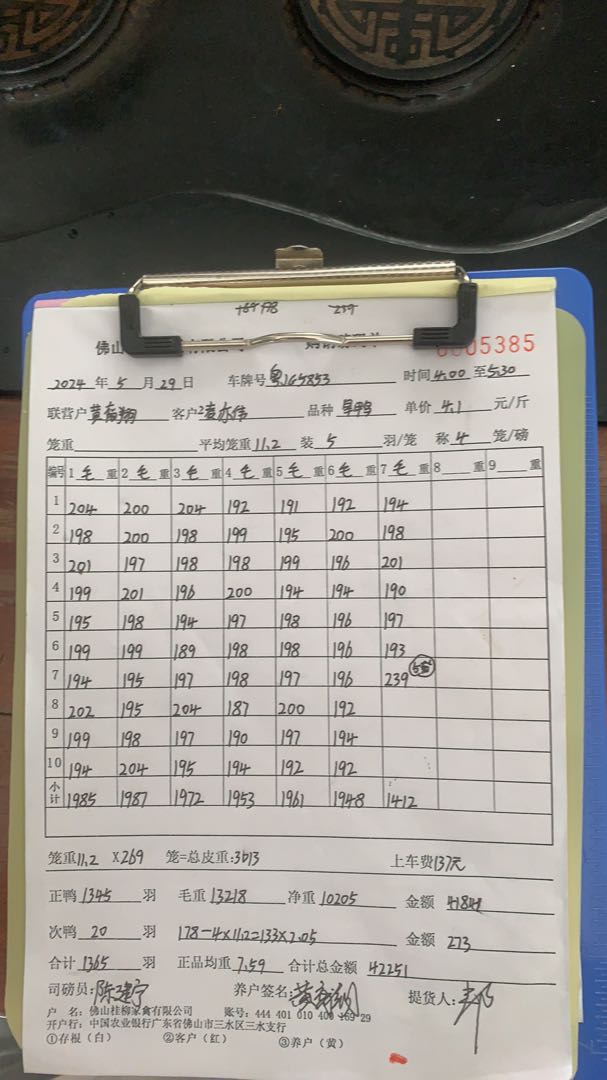 169 198 239
佛山
0005385
2024 年 5 月 29 日 车牌号 粤JG5853 时间 4:00 至 5:30
联营户 客户 品种 单价 4.1 元/斤
笼重 平均笼重 11.2 装 5 羽/笼 称 4 笼/磅
编号 1 毛 重 2 毛 重 3 毛 重 4 毛 重 5 毛 重 6 毛 重 7 毛 重 8 重 9 重
1 204 200 204 192 191 192 194
2 198 200 198 199 195 200 198
3 201 197 198 198 199 196 201
4 199 201 196 200 194 194 190
5 195 198 194 197 198 196 197
6 199 199 189 198 198 196 193
7 194 195 197 198 197 196 239 5笼
8 202 195 204 187 200 192
9 199 198 197 190 197 194
10 194 204 195 194 192 192
小计 1985 1987 1972 1953 1961 1948 1412
笼重 11.2 X269 笼=总皮重:3013 上车费 137元
正鸭 1345 羽 毛重 13218 净重 10205 金额 41841
次鸭 20 羽 178-4×11.2=133×2.05 金额 273
合计 1365 羽 正品均重 7.59 合计总金额 42251
司磅员: 陈建宁 养户签名: 提货人: 邦
户 名: 佛山桂柳家禽有限公司 账号: 444 401 010 400 169 29
开户行: 中国农业银行广东省佛山市三水区三水支行
①存根（白） ②客户（红） ③养户（黄）